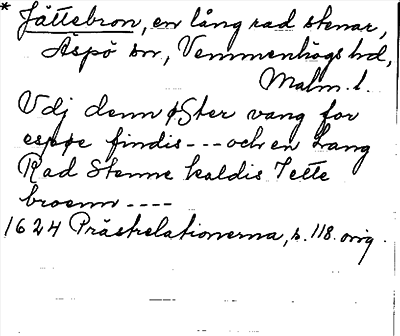 * Jättebron, en lång rad stenar,
Äspö sn, Vemmenhögs hd,
Malm. l.
Vdj denn øster vang for
espøe findis --- och en Lang
Rad Stenne kaldis Iette
broenn ----
1624 Prästrelationerna, s. 118. orig.